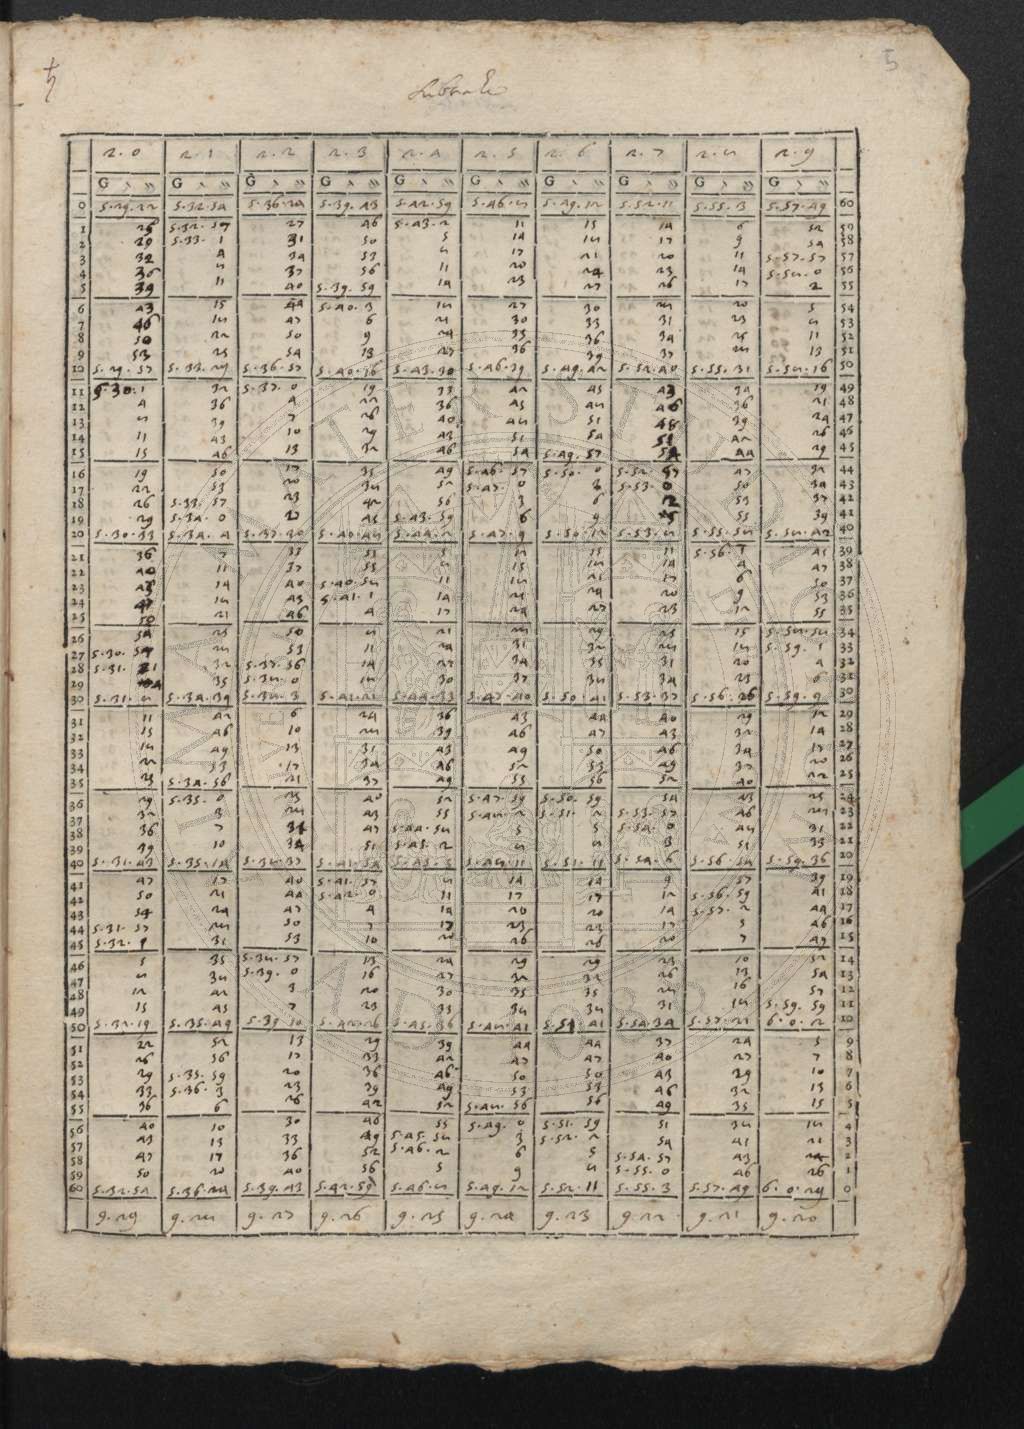 ♄
5
Librale
2.0 2.1 2.2 2.3 2.4 2.5 2.6 2.7 2.8 2.9
G ′ ″ G ′ ″ G ′ ″ G ′ ″ G ′ ″ G ′ ″ G ′ ″ G ′ ″ G ′ ″ G ′ ″
0 5.29.22 5.32.54 5.36.24 5.39.43 5.42.59 5.46.8 5.49.12 5.52.11 5.55.3 5.57.49 60
1 25 5.32.57 27 46 5.43.2 11 15 14 6 52 59
2 29 5.33.1 31 50 5 14 18 17 9 54 58
3 32 4 34 53 8 17 21 20 11 5.57.57 57
4 36 8 37 56 11 20 24 23 14 5.58.0 56
5 39 11 40 5.39.59 14 23 27 26 17 2 55
6 43 15 44 5.40.3 18 27 30 28 20 5 54
7 46 18 47 6 21 30 33 31 23 8 53
8 50 22 50 9 24 33 36 34 25 11 52
9 53 25 54 13 27 36 39 37 28 13 51
10 5.29.57 5.33.29 5.36.57 5.40.16 5.43.30 5.46.39 5.49.42 5.52.40 5.55.31 5.58.16 50
11 5.30.1 32 5.37.0 19 33 42 45 43 34 19 49
12 4 36 4 22 36 45 48 46 36 21 48
13 8 39 7 26 40 48 51 48 39 24 47
14 11 43 10 29 43 51 54 51 42 26 46
15 15 46 13 32 46 54 5.49.57 54 44 29 45
16 19 50 17 35 49 5.46.57 5.50.0 5.52.57 47 32 44
17 22 53 20 38 52 5.47.0 3 5.53.0 50 34 43
18 26 5.33.57 23 42 56 3 6 2 53 37 42
19 29 5.34.0 27 45 5.43.59 6 9 5 55 39 41
20 5.30.33 5.34.4 5.37.30 5.40.48 5.44.2 5.47.9 5.50.12 5.53.8 5.55.58 5.58.42 40
21 36 7 33 51 5 12 15 11 5.56.1 45 39
22 40 11 37 55 8 15 18 14 4 47 38
23 43 14 40 5.40.58 11 18 21 17 6 50 37
24 47 18 43 5.41.1 14 21 24 20 9 53 36
25 50 21 46 4 17 24 27 23 12 55 35
26 54 25 50 8 21 28 29 25 15 5.58.58 34
27 5.30.57 28 53 11 24 31 32 28 18 5.59.1 33
28 5.31.1 32 5.37.56 14 27 34 35 31 20 4 32
29 4 35 5.38.0 18 30 37 38 34 23 6 31
30 5.31.8 5.34.39 5.38.3 5.41.21 5.44.33 5.47.40 5.50.41 5.53.37 5.56.26 5.59.9 30
31 11 42 6 24 36 43 44 40 29 12 29
32 15 46 10 28 39 46 47 43 32 14 28
33 18 49 13 31 43 49 50 46 34 17 27
34 22 53 17 34 46 52 53 49 37 20 26
35 25 5.34.56 21 37 49 55 56 52 40 22 25
36 29 5.35.0 25 40 52 5.47.59 5.50.59 54 43 25 24
37 32 3 28 43 55 5.48.2 5.51.2 5.53.57 46 28 23
38 36 7 31 47 5.44.58 5 5 5.54.0 48 31 22
39 39 10 34 51 5.45.2 8 8 3 51 33 21
40 5.31.43 5.35.14 5.38.37 5.41.54 5.45.5 5.48.11 5.51.11 5.54.6 5.56.54 5.59.36 20
41 47 17 40 5.41.57 8 14 14 9 57 39 19
42 50 21 44 5.42.0 11 17 17 12 5.56.59 41 18
43 54 24 47 4 14 20 20 14 5.57.2 44 17
44 5.31.57 28 50 7 17 23 23 17 5 46 16
45 5.32.1 31 53 10 20 26 26 20 7 49 15
46 5 35 5.38.57 13 24 29 29 23 10 52 14
47 8 38 5.39.0 16 27 32 32 26 13 54 13
48 12 42 3 20 30 35 35 28 16 57 12
49 15 45 7 23 33 38 38 31 18 5.59.59 11
50 5.32.19 5.35.49 5.39.10 5.42.26 5.45.36 5.48.41 5.51.41 5.54.34 5.57.21 6.0.2 10
51 22 52 13 29 39 44 44 37 24 5 9
52 26 56 17 33 42 47 47 40 27 7 8
53 29 5.35.59 20 36 46 50 50 43 29 10 7
54 33 5.36.3 23 39 49 53 53 46 32 13 6
55 36 6 26 42 52 5.48.56 56 49 35 15 5
56 40 10 30 46 55 5.49.0 5.51.59 51 38 18 4
57 43 13 33 49 5.45.58 3 5.52.2 54 41 21 3
58 47 17 36 52 5.46.2 6 5 5.54.57 43 24 2
59 50 20 40 56 5 9 8 5.55.0 46 26 1
60 5.32.54 5.36.24 5.39.43 5.42.59 5.46.8 5.49.12 5.52.11 5.55.3 5.57.49 6.0.29 0
9.29 9.28 9.27 9.26 9.25 9.24 9.23 9.22 9.21 9.20